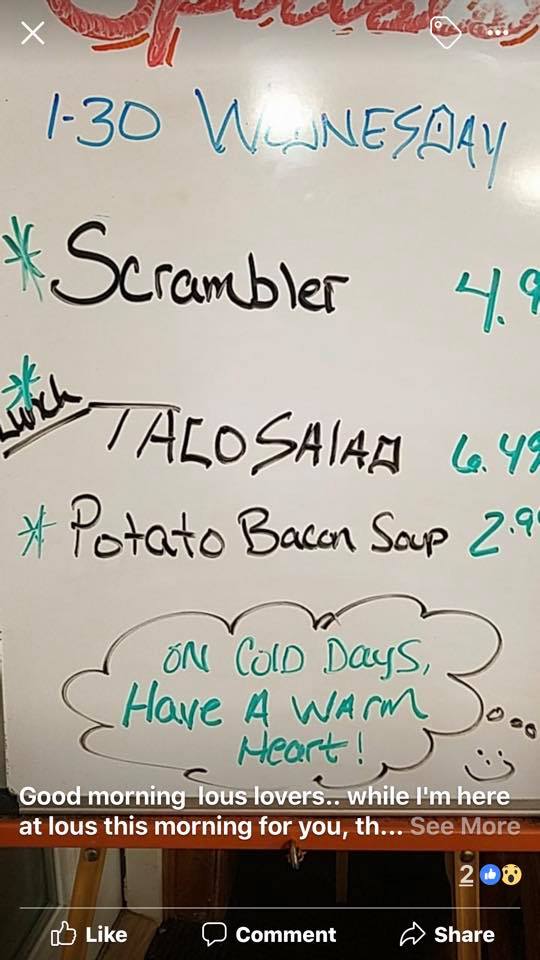 Specials
1-30 WEDNESDAY
* Scrambler 4.9
* Lunch
TACO SALAD 6.49
* Potato Bacon Soup 2.9
ON COLD DAYS,
Have A WARM
Heart!
Good morning lous lovers.. while I'm here
at lous this morning for you, th... See More
2
Like Comment Share